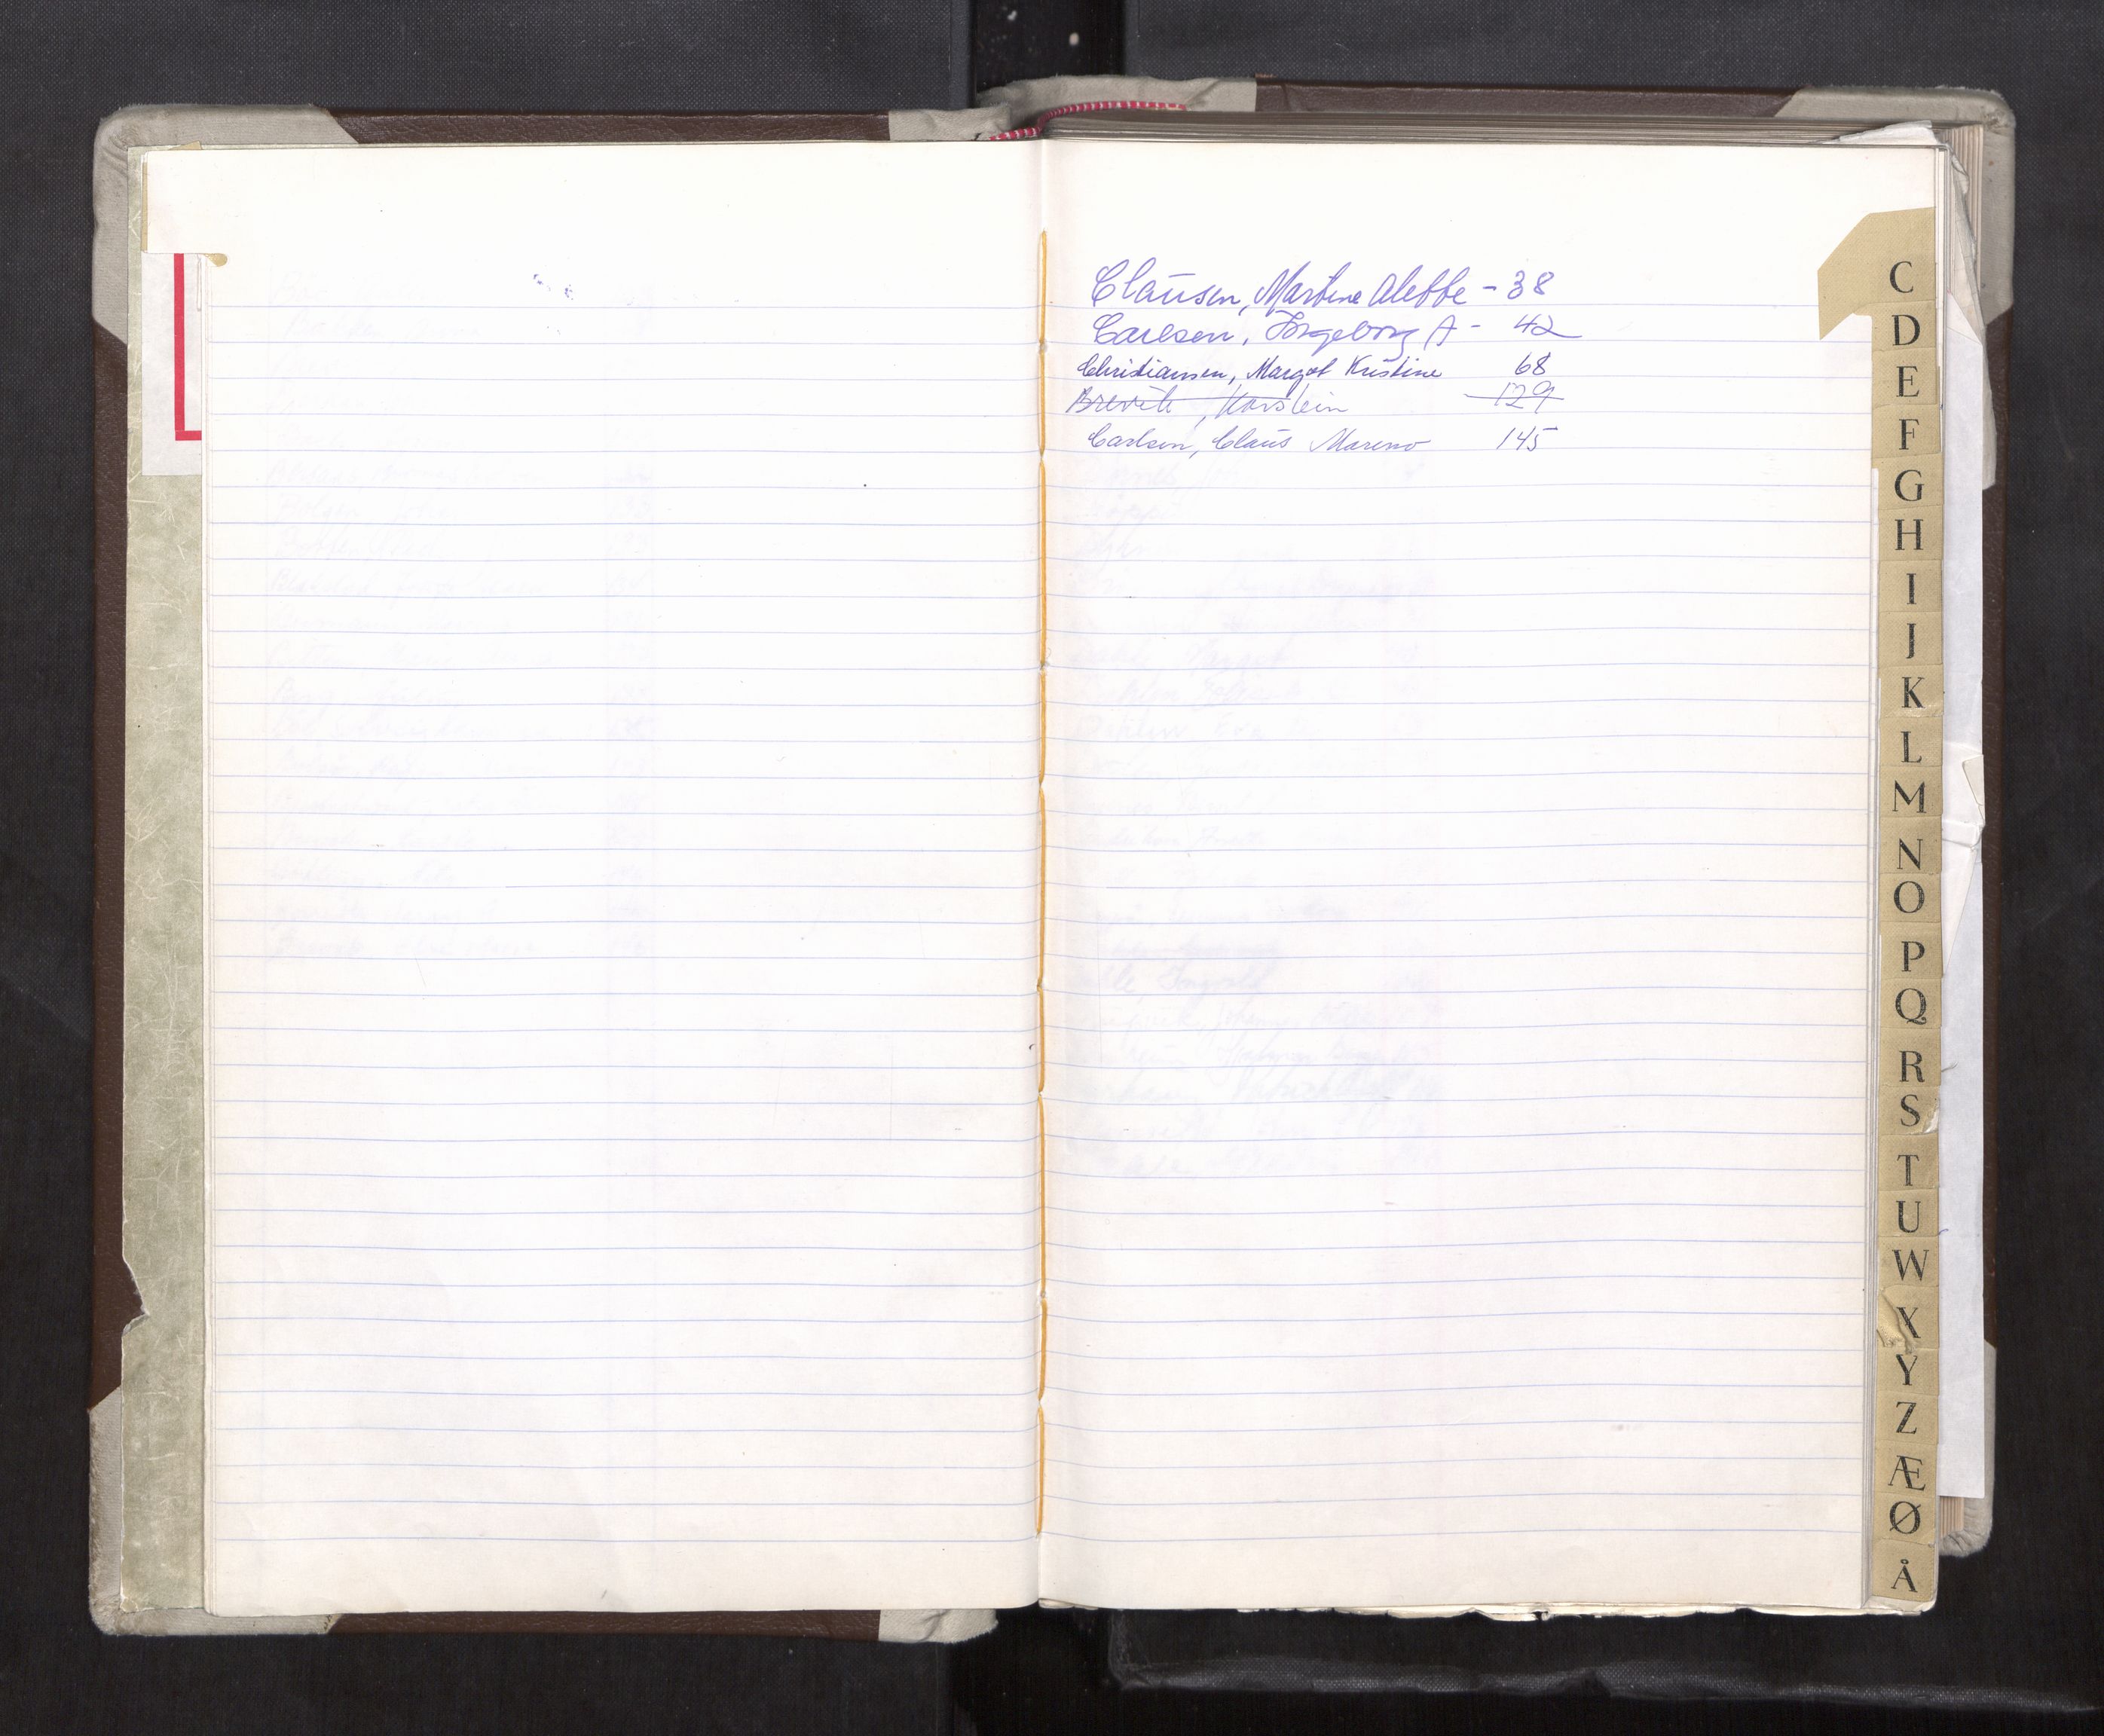 Clausen, Martine Alette - 38
Carlsen, Ingeborg A - 42
Christiansen, Margot Kristine 68
Brevik, Karstein 129
Carlsen, Claus Mareno 145
C
D
E
F
G
H
I
J
K
L
M
N
O
P
Q
R
S
T
U
W
X
Y
Z
Æ
Ø
Å